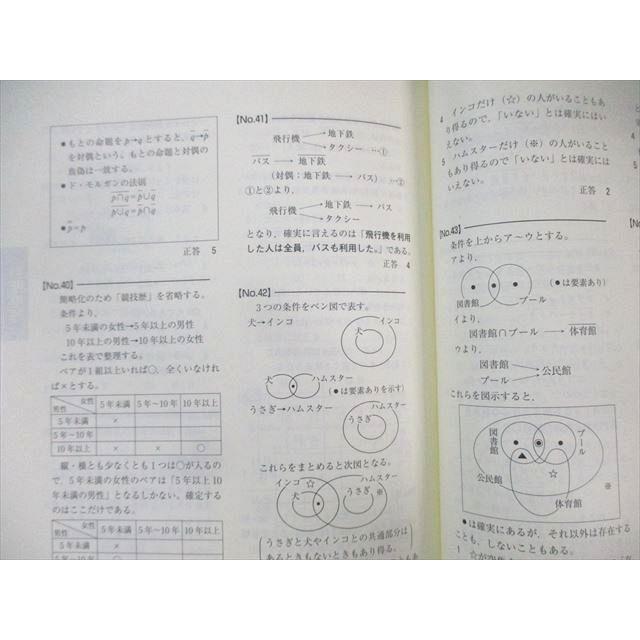 ●もとの命題をp→qとすると、q→p
を対偶という。もとの命題と対偶の
真偽は一致する。
●ド・モルガンの法則
p∩q=p∪q
p∪q=p∩q
●p=p
正答 5
【No.40】
簡略化のため「競技歴」を省略する。
条件より、
5年未満の女性→5年以上の男性
10年以上の男性→10年以上の女性
これを表で整理する。
ペアが1組以上いれば○、全くいなけれ
ば×とする。
女性
男性
5年未満 5年～10年 10年以上
5年未満 ×
5年～10年
10年以上 × × ○
縦・横とも少なくとも1つは○が入るの
で、5年未満の女性のペアは「5年以上10
年未満の男性」となるしかない。確定する
のはここだけである。
女性
男性
5年未満 5年～10年 10年以上
5年未満 ×
【No.41】
飛行機 地下鉄
タクシー …①
バス 地下鉄
（対偶：地下鉄 バス） …②
①と②より、
飛行機 地下鉄 バス
タクシー
となり、確実に言えるのは「飛行機を利用
した人は全員、バスも利用した。」である。
正答 4
【No.42】
3つの条件をベン図で表す。
犬→インコ
インコ
犬
犬 ハムスター
（●は要素ありを示す）
うさぎ→ハムスター
ハムスター
うさぎ
これらをまとめると次図となる。
インコ ☆ ハムスター
犬 うさぎ ※
うさぎと犬やインコとの共通部分は
あるときもないときもあり得る。
4 インコだけ（☆）の人がいることもあ
り得るので、「いない」とは確実にはい
えない。
5 ハムスターだけ（※）の人がいること
もあり得るので「いない」とは確実には
いえない。
正答 2
【No.43】
条件を上からア～ウとする。
アより、
図書館 プール
（●は要素あり）
イより、
図書館∩プール → 体育館
ウより、
図書館
プール
公民館
これらを図示すると、
図書館
プール
公民館
☆
※
体育館
●は確実にあるが、それ以外は存在する
ことも、しないこともある。